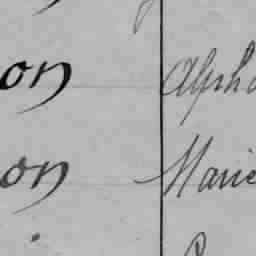 on Alpho
on Marie